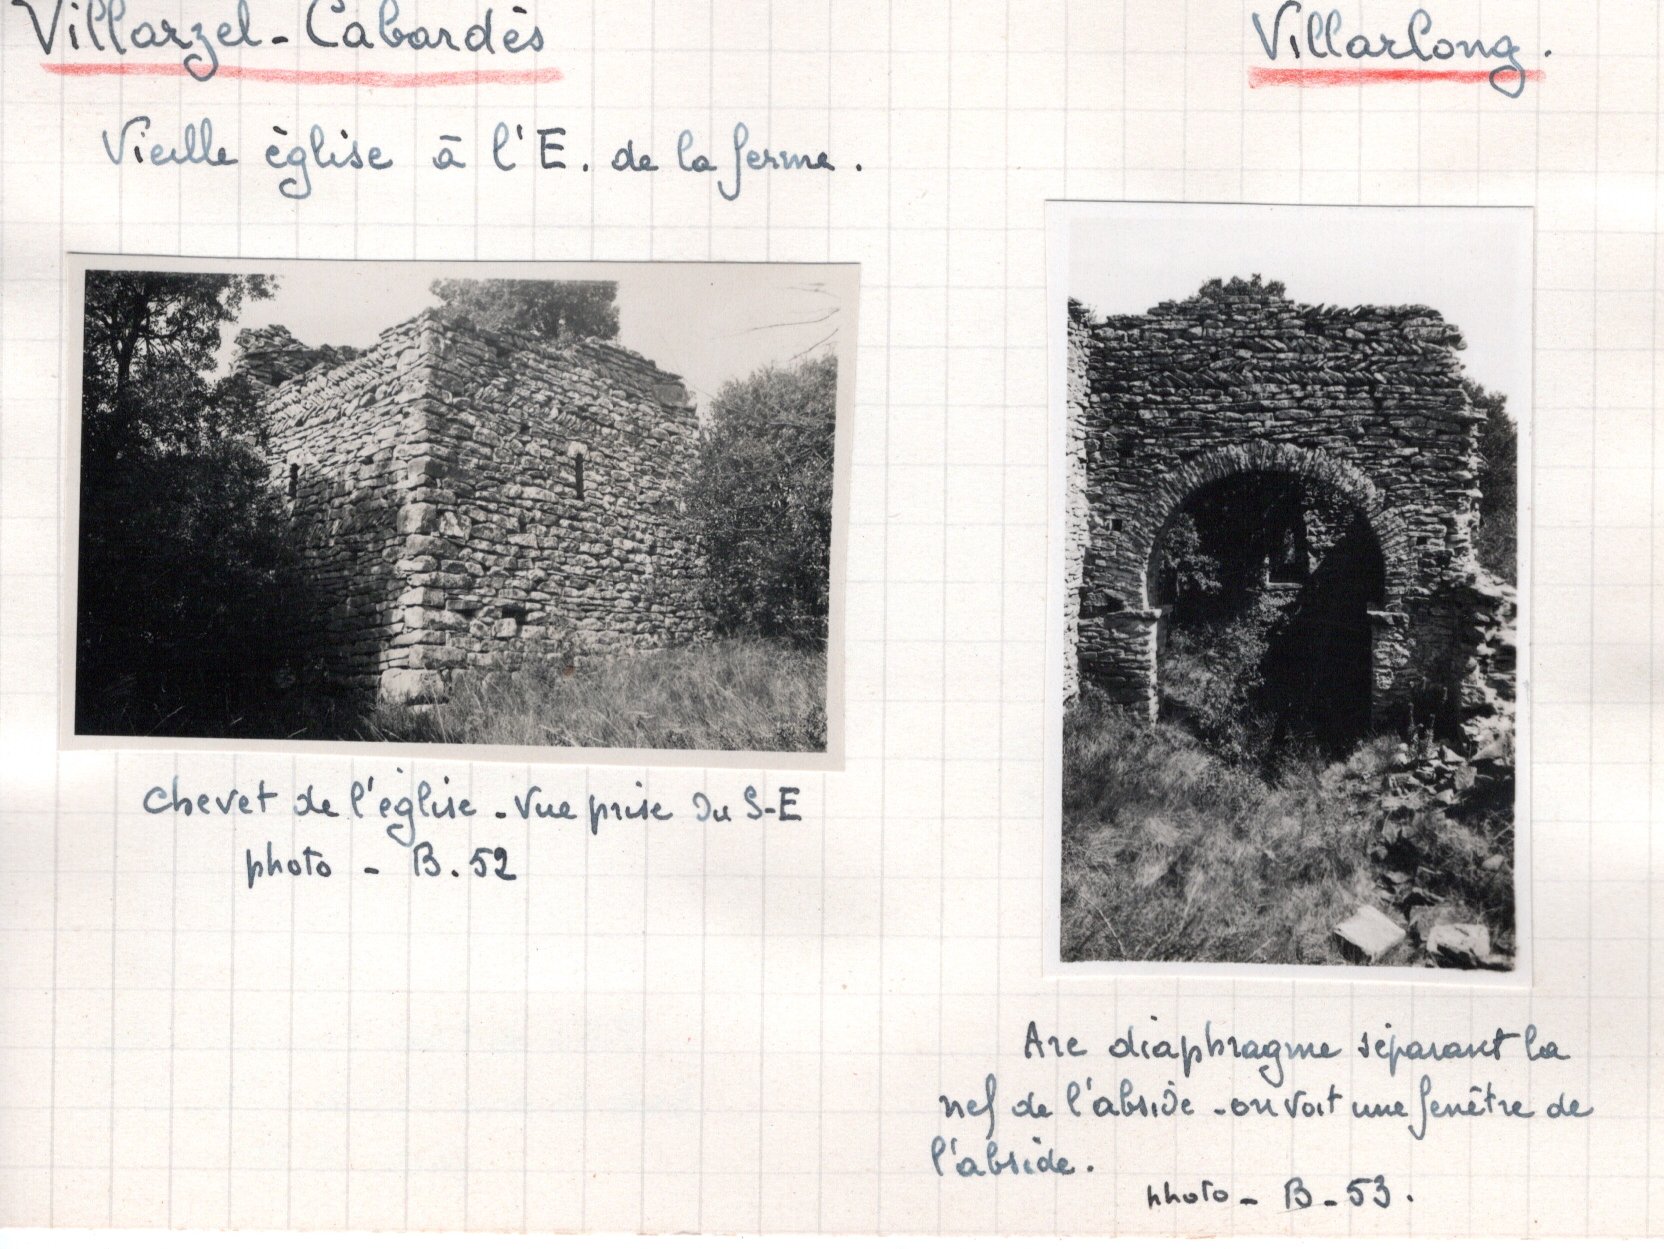 Villarzel-Cabardès
Villarlong.
Vieille église à l'E. de la ferme.
Chevet de l'église - Vue prise du S-E
photo - B.52
Arc diaphragme séparant la
nef de l'abside - on voit une fenêtre de
l'abside.
photo - B-53.